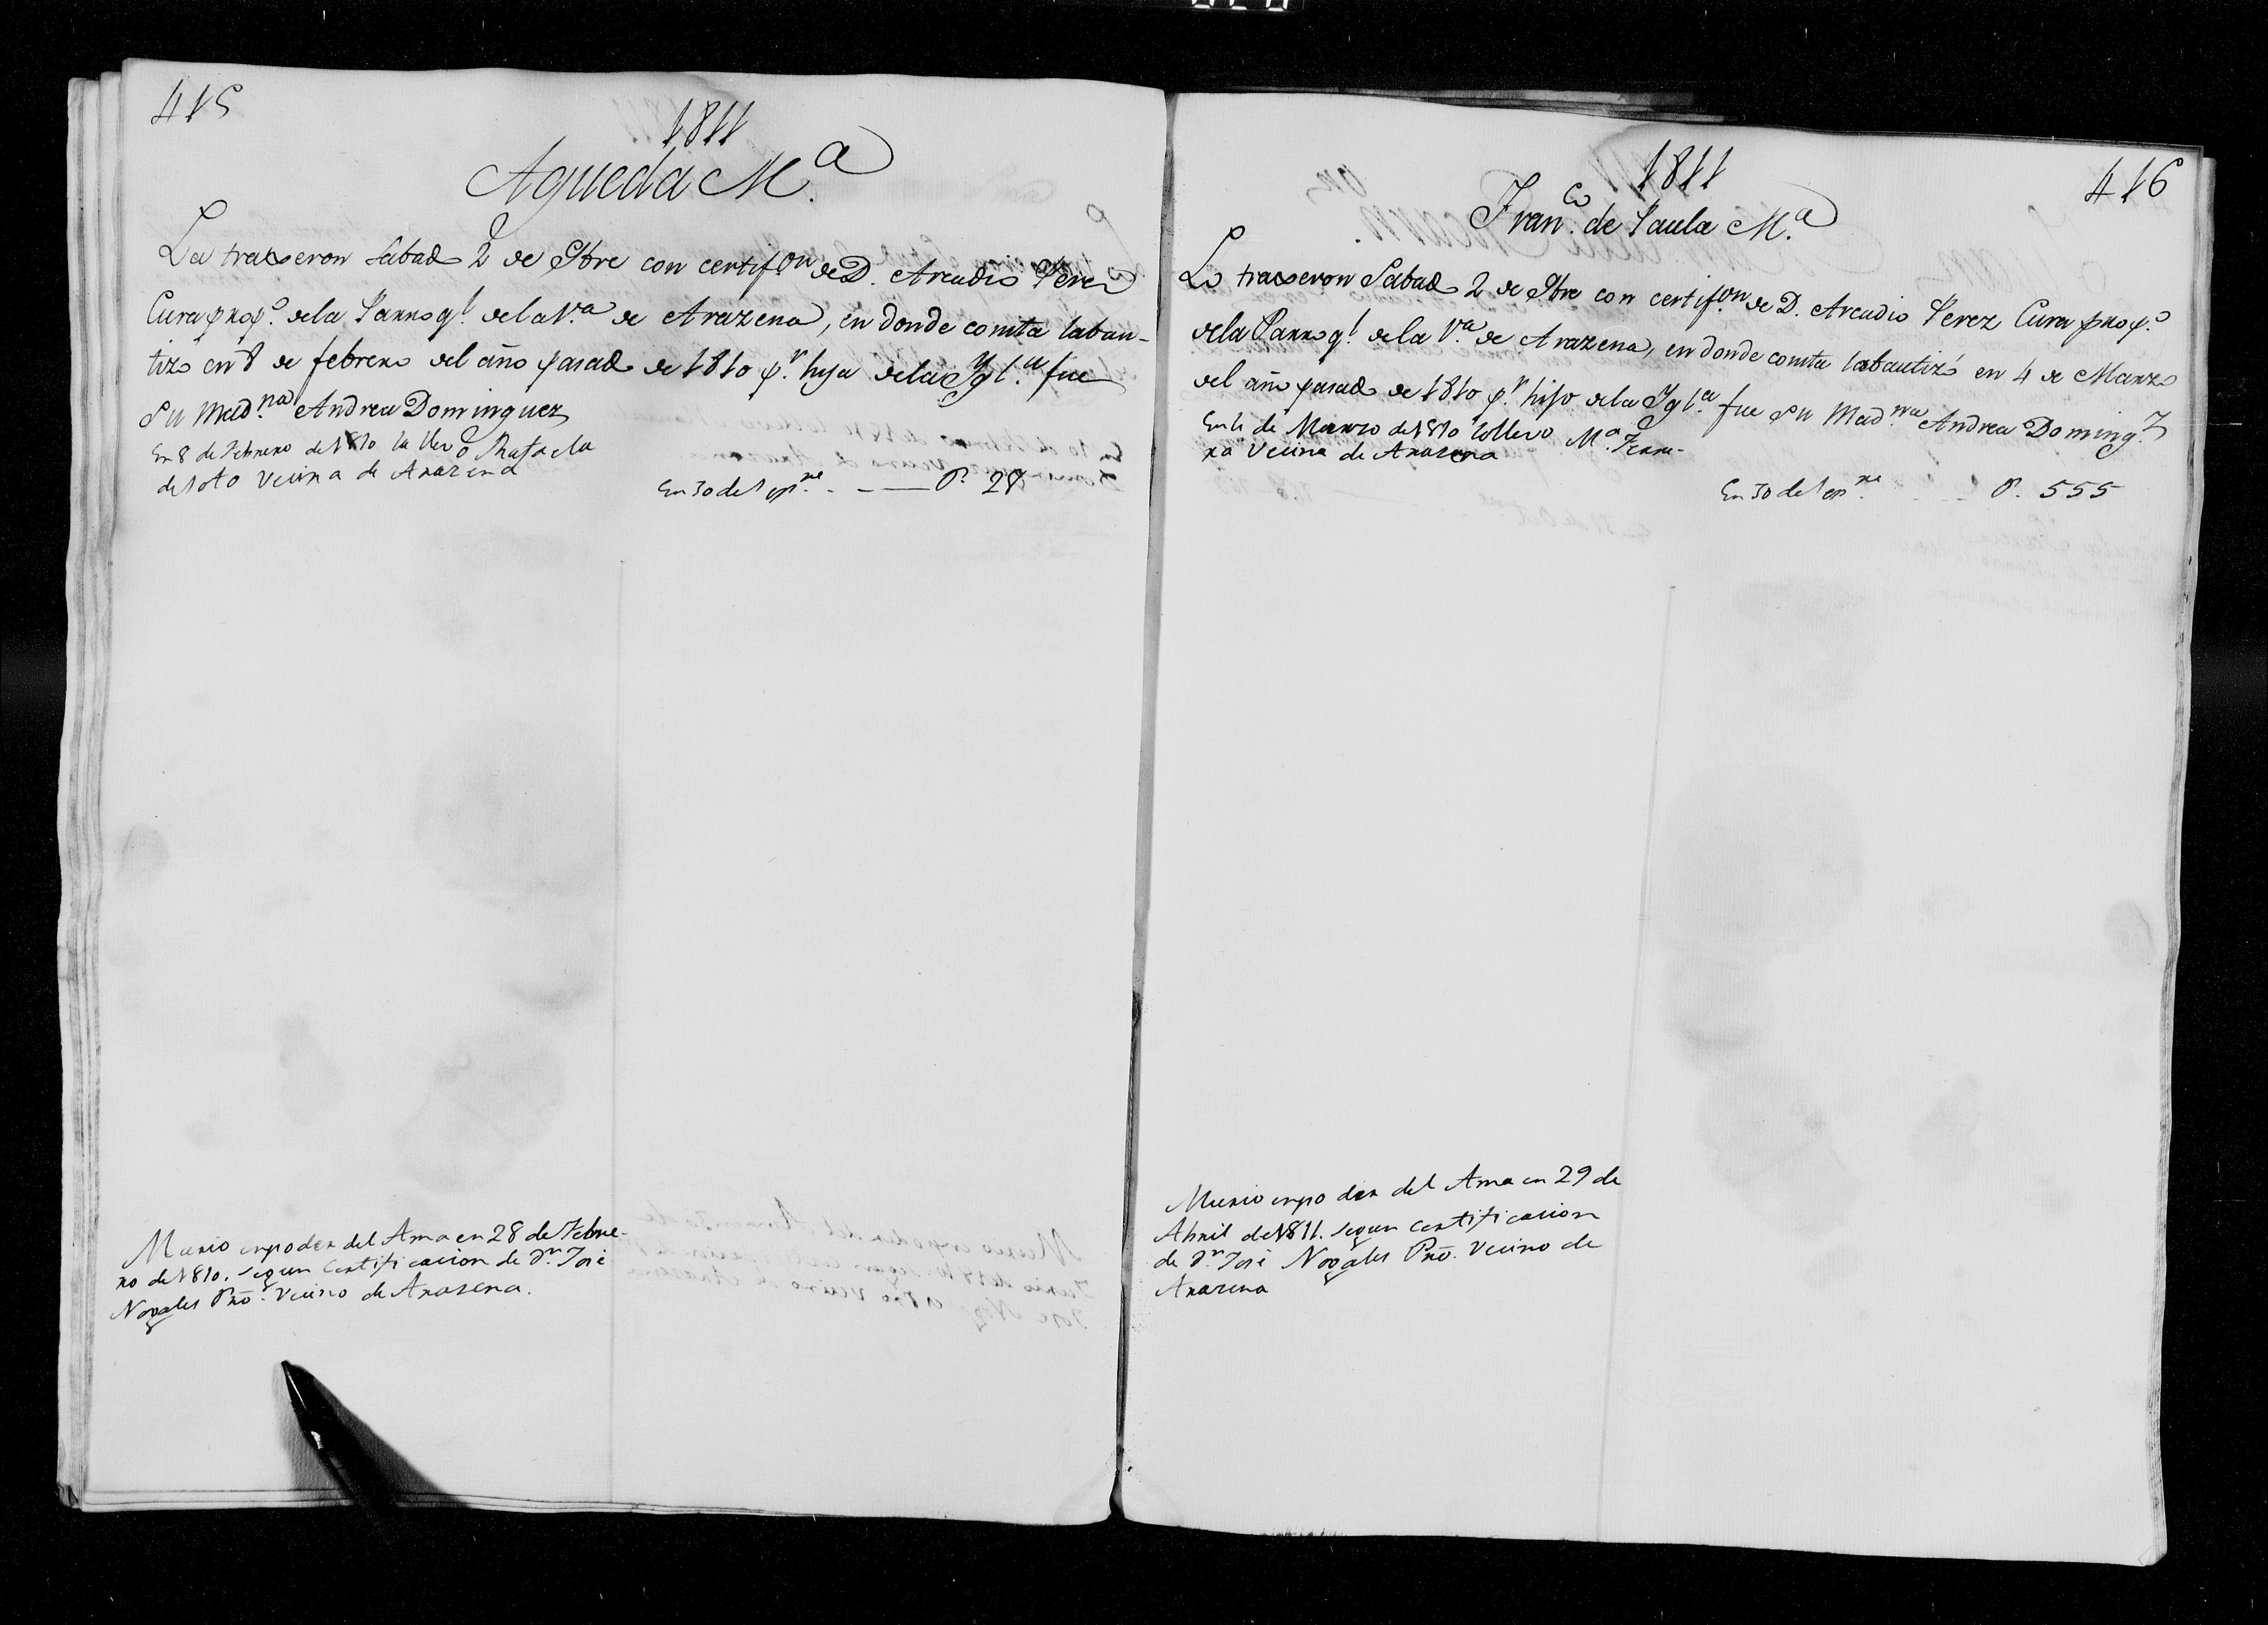 415
1811
Agueda M.ª
La traxeron Sabado 2 de 9bre con certif.on de D. Arcadio Perez
Cura prop.º dela Parroq.l dela V.ª de Arazena, en donde consta labau-
tizo en 8 de febrero del año pasado de 1810 p.r hija dela Ygl.ª fue
su Mad.na Andrea Dominguez
En 8 de Febrero de 1810 la llevó Rafaela
de Soto Vecina de Aracena
En 30 de
P. 27
Murio en poder del Ama en 28 de Febre-
ro de 1810. segun Certificacion de D.n José
Nogales Pro. Vecino de Arasena.
1811
416
Fran.co de Paula M.ª
Lo traxeron Sabado 2 de 9bre con certif.on de D. Arcadio Perez Cura prop.º
dela Parroq.l dela V.ª de Arazena, en donde consta lo bautizó en 4 de Marzo
del año pasado de 1810 p.r hijo dela Ygl.ª fue su Mad.na Andrea Doming.z
En 4 de Marzo de 1810 lo llevo M.ª Ferre-
ra Vecina de Arasena
En 30 de
P. 555
Murio en poder del Ama en 29 de
Abril de 1811. segun Certificacion
de D.n José Nogales Pro. Vecino de
Arazena